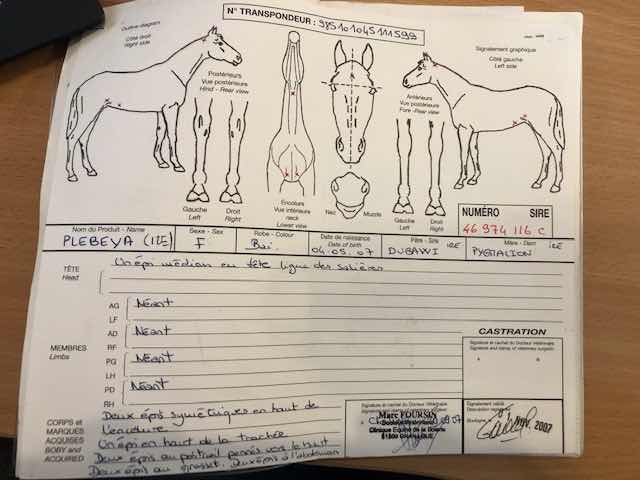 N° TRANSPONDEUR : 985101045111599
Outline diagram
Côté droit
Right side
Signalement graphique
Côté gauche
Left side
Postérieurs
Vue postérieurs
Hind - Rear view
Antérieurs
Vue postérieurs
Fore - Rear view
Gauche
Left
Droit
Right
Encolure
Vue inférieure
neck
Lower view
Nez
Muzzle
Gauche
Left
Droit
Right
NUMÉRO SIRE
46 974 116 C
Nom du Produit - Name
PLEBEYA (IRE)
Sexe - Sex
F
Robe - Colour
Bai.
Date de naissance
Date of birth
04.05.07
Père - Sire
DUBAWI IRE
Mère - Dam
PYGMALION IRE
TÊTE
Head
Un épi médian en tête ligne des salières
MEMBRES
Limbs
AG
LF
Néant
AD
RF
Néant
PG
LH
Néant
PD
RH
Néant
CASTRATION
Signature et cachet du Docteur Vétérinaire
Signature and stamp of veterinary surgeon
CORPS et
MARQUES
ACQUISES
BODY and
ACQUIRED
Deux épis symétriques en haut de
l'encolure
Un épi en haut de la trachée
Deux épis au poitrail pennés vers le haut
Deux épis au grasset. Deux épis à l'abdomen
Signature et cachet du Docteur Vétérinaire
Marc FOURSIN
Docteur Vétérinaire
Clinique Equine de la Boisrie
61500 CHAILLOUE
09 07
Signalement validé
Description registered
2007